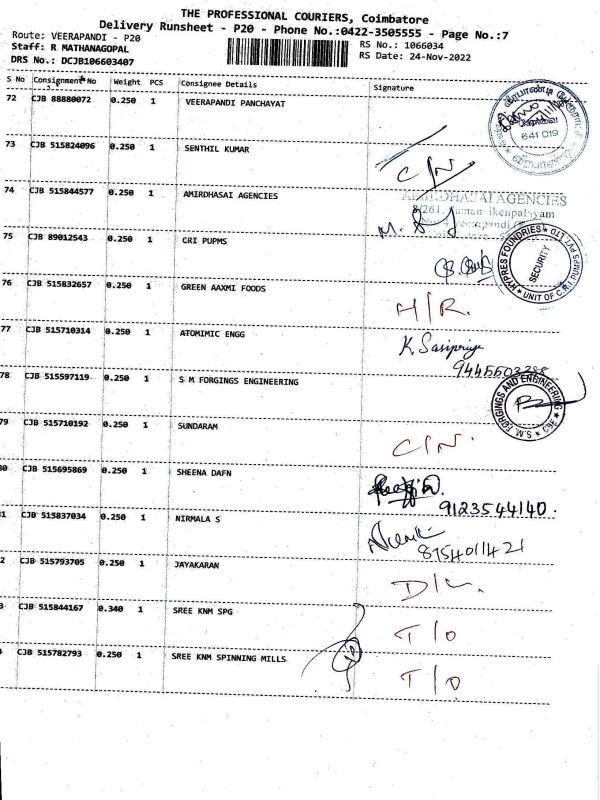 THE PROFESSIONAL COURIERS, Coimbatore
Delivery Runsheet - P20 - Phone No.:0422-3505555 - Page No.:7
Route: VEERAPANDI - P20
Staff: R MATHANAGOPAL
DRS No.: DCJB106603407
RS No.: 1066034
RS Date: 24-Nov-2022
S No Consignment No Weight PCS Consignee Details Signature
72 CJB 88880072 0.250 1 VEERAPANDI PANCHAYAT
641 019
73 CJB 515824096 0.250 1 SENTHIL KUMAR C/N
74 CJB 515844577 0.250 1 AMIRDHASAI AGENCIES
AMIRDHASAI AGENCIES
8/261,
M.
75 CJB 89012543 0.250 1 CRI PUPMS
HYPRES FOUNDRIES
SECURITY
UNIT OF C.R.I. PUMPS PVT LTD
76 CJB 515832657 0.250 1 GREEN AAXMI FOODS H/R.
77 CJB 515710314 0.250 1 ATOMIMIC ENGG K. Sasipriya
78 CJB 515597119 0.250 1 S M FORGINGS ENGINEERING
S.M. FORGINGS AND ENGINEERING
79 CJB 515710192 0.250 1 SUNDARAM C/N.
80 CJB 515695869 0.250 1 SHEENA DAFN
9123544140.
81 CJB 515837034 0.250 1 NIRMALA S
8754011421
2 CJB 515793705 0.250 1 JAYAKARAN D/L.
3 CJB 515844167 0.340 1 SREE KNM SPG T/O
CJB 515782793 0.250 1 SREE KNM SPINNING MILLS T/O